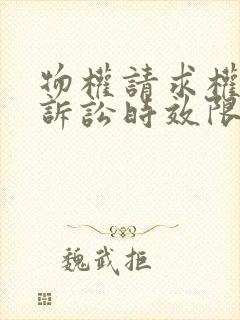 物權請求權
訴訟時效限
魏武拒